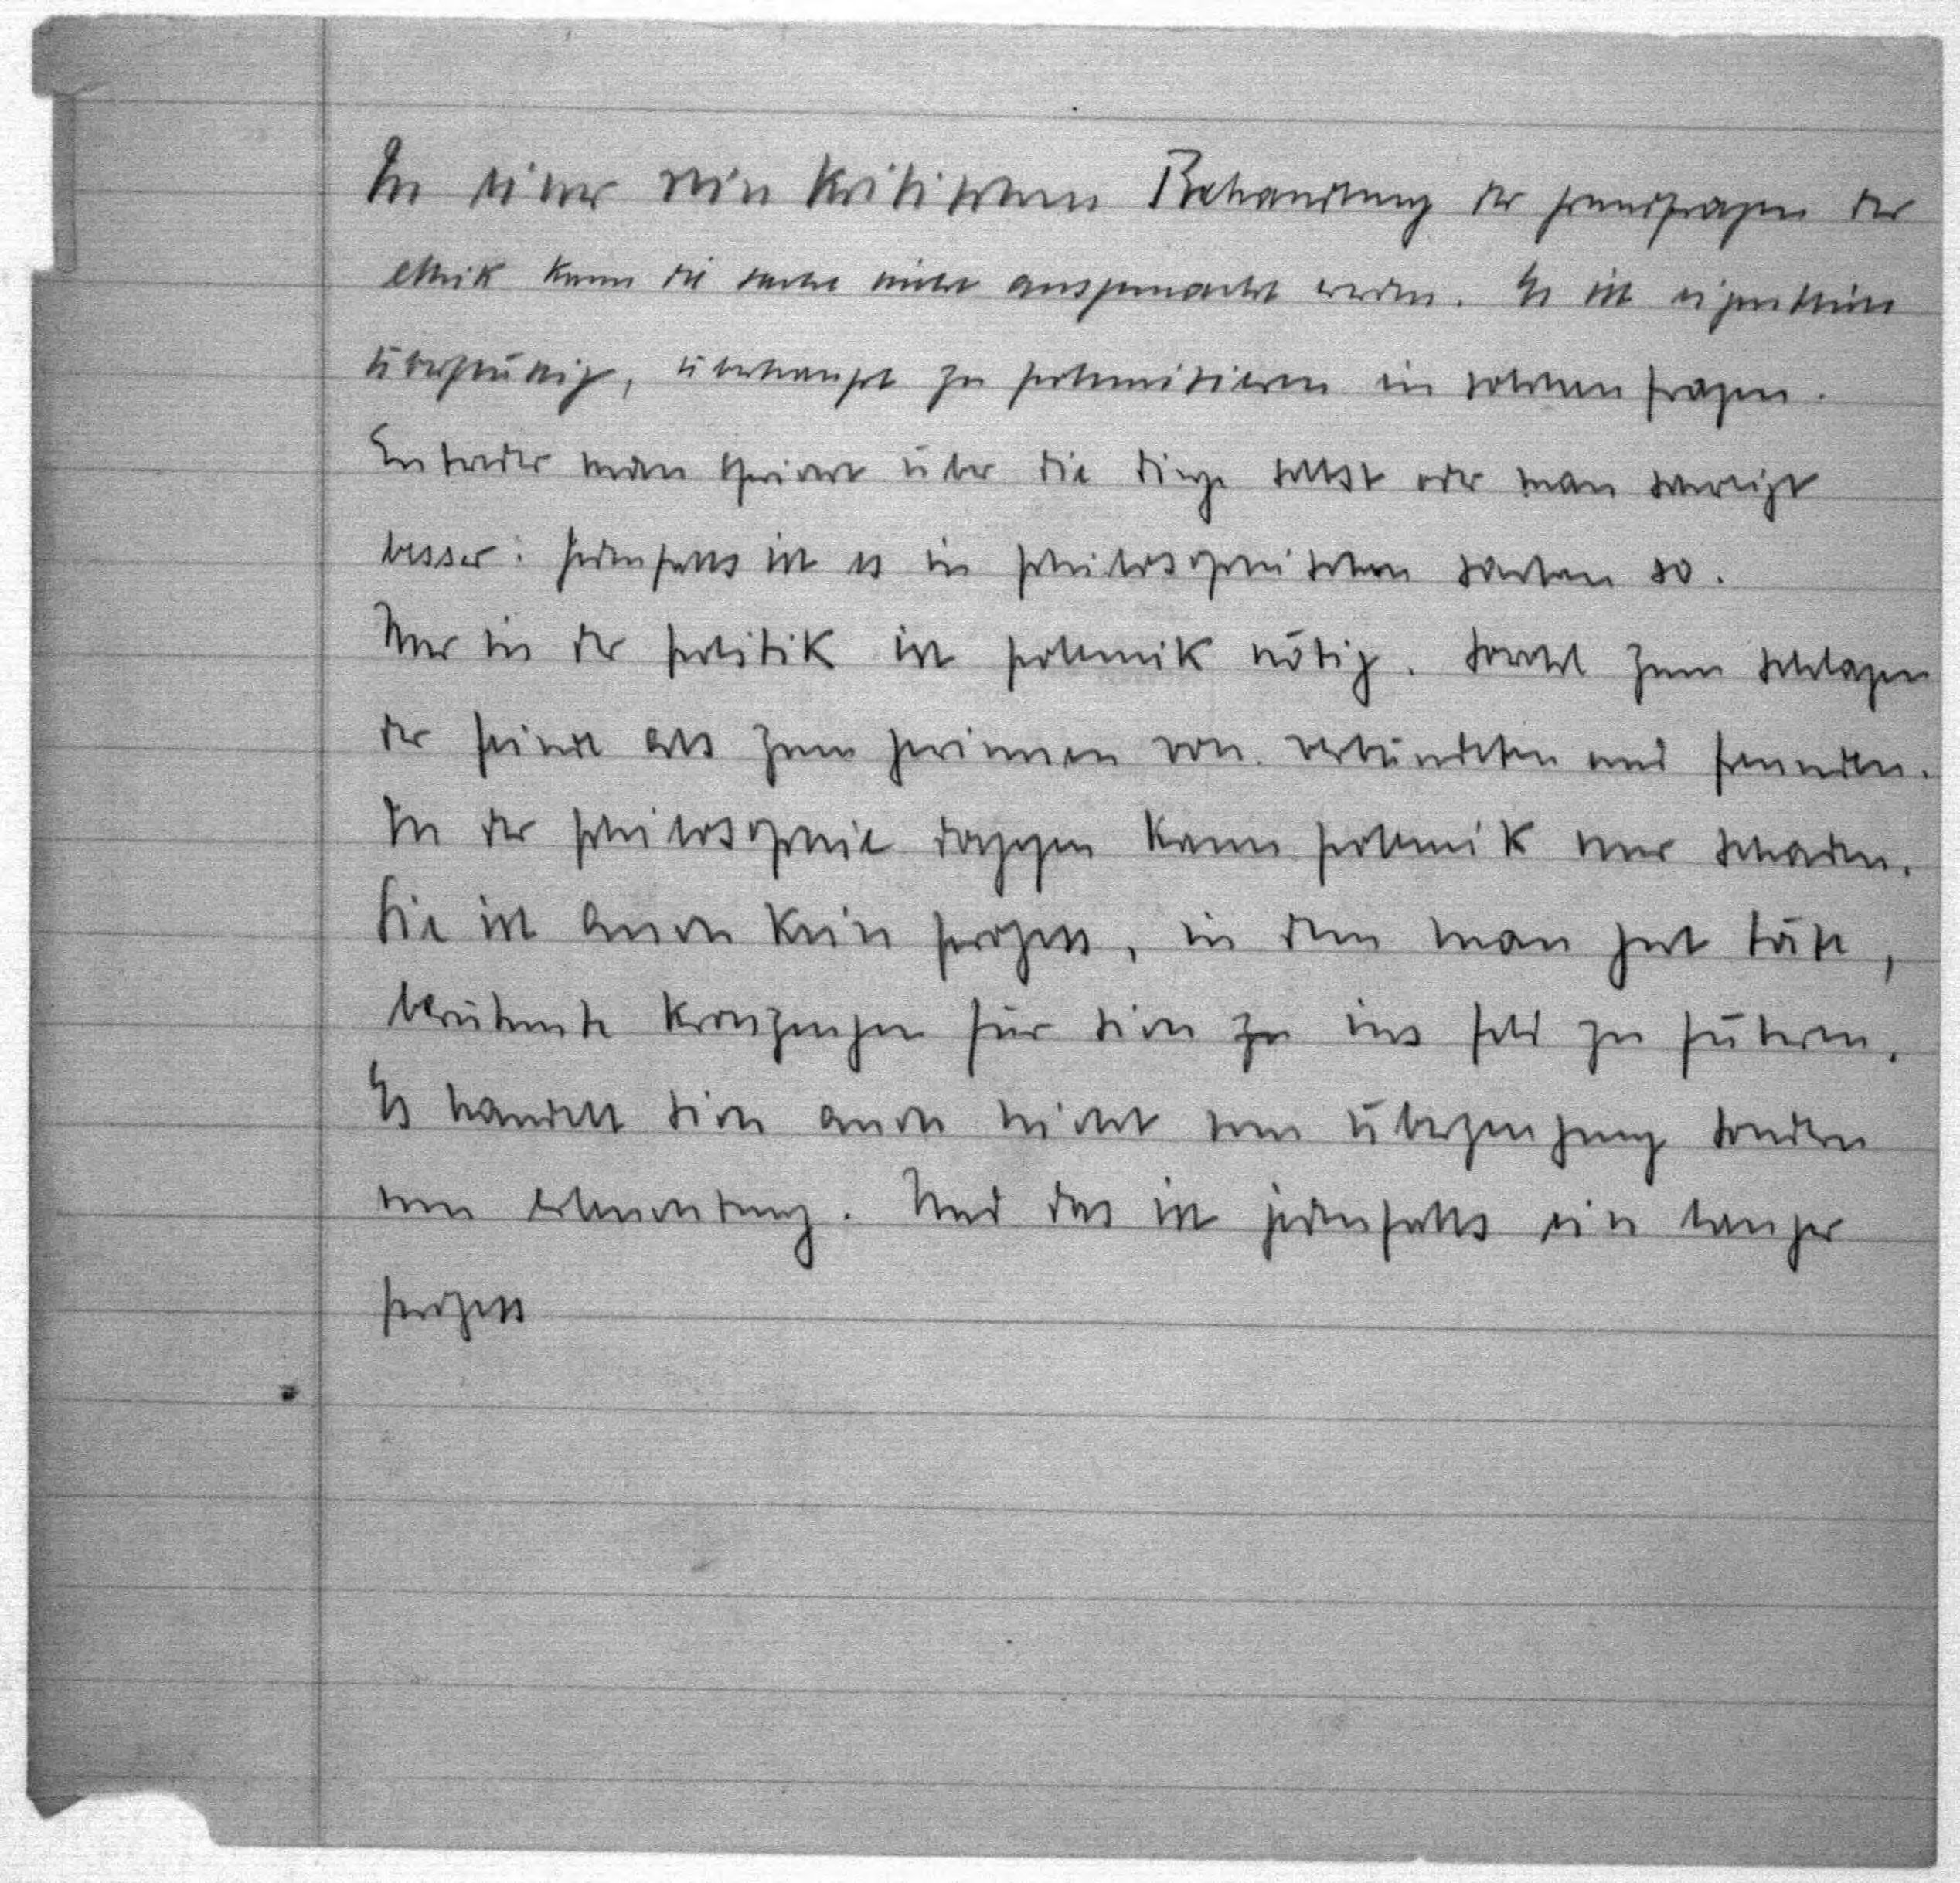 In einer rein kritischen Behandlung der grundfragen der
ethik kann die sache nicht ausgemacht werden. Es ist eigentlich
überflüssig, überhaupt zu polemisieren in solchen fragen.
Entweder man spricht über die dinge selbst oder man schweigt
besser: jedenfalls ist es in philosophischen sachen so.
Nur in der politik ist polemik nötig. Sowohl zum schlagen
der feinde als zum gewinnen von verbündeten und freunden.
In der philosophie dagegen kann polemik nur schaden.
Sie ist auch kein prozess, in dem man gut täte,
berühmte kronzeugen für sich zu ins feld zu führen.
Es handelt sich auch nicht um überzeugung sondern
um erleuchtung. Und das ist jedenfalls ein langer
prozess